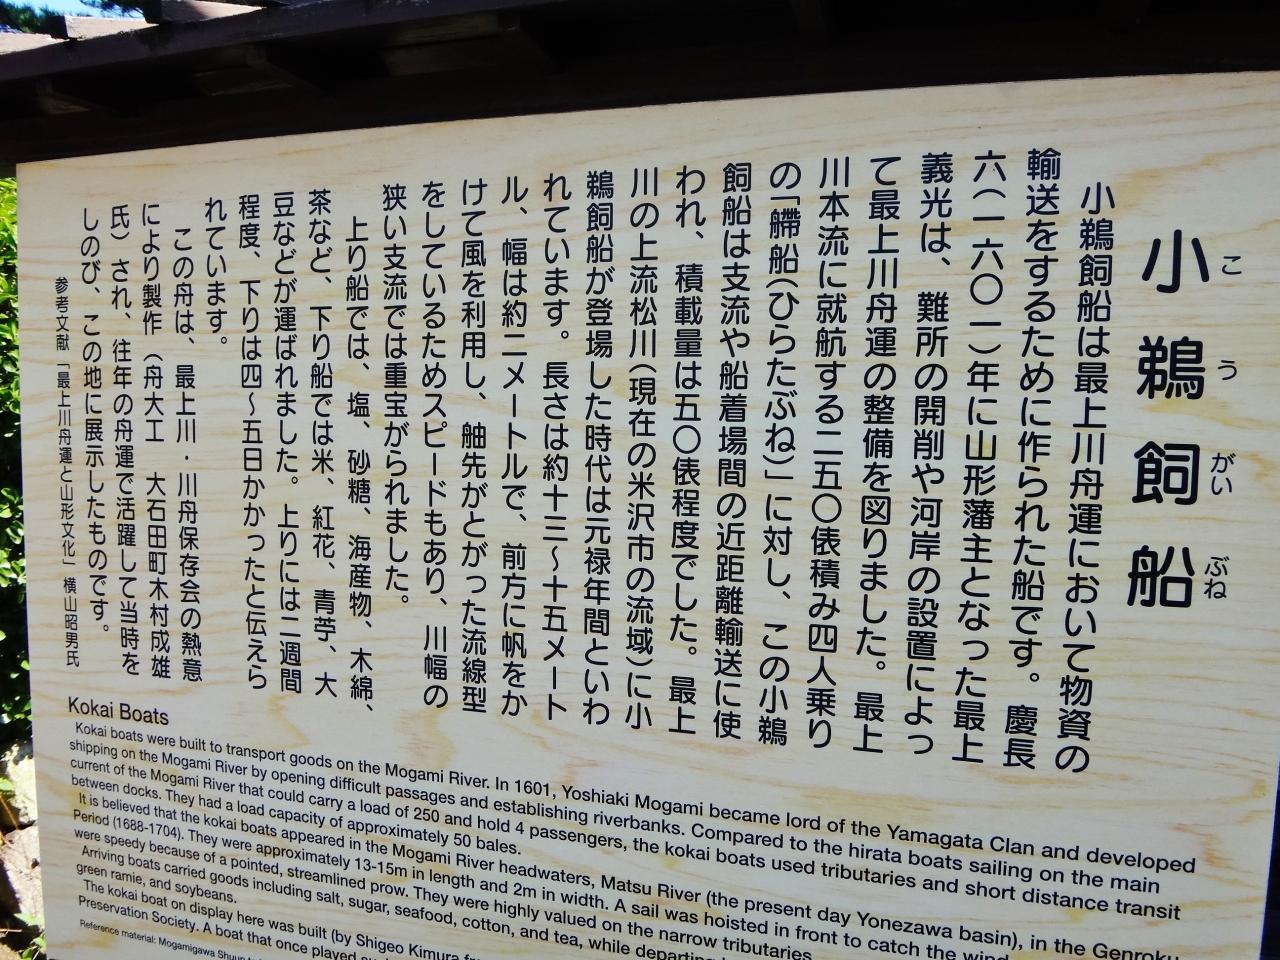 小鵜飼船
こ う がい ぶね
小鵜飼船は最上川舟運において物資の
輸送をするために作られた船です。慶長
六(一六〇一)年に山形藩主となった最上
義光は、難所の開削や河岸の設置によっ
て最上川舟運の整備を図りました。最上
川本流に就航する二五〇俵積み四人乗り
の「艜船(ひらたぶね)」に対し、この小鵜
飼船は支流や船着場間の近距離輸送に使
われ、積載量は五〇俵程度でした。最上
川の上流松川(現在の米沢市の流域)に小
鵜飼船が登場した時代は元禄年間といわ
れています。長さは約十三〜十五メート
ル、幅は約二メートルで、前方に帆をか
けて風を利用し、舳先がとがった流線型
をしているためスピードもあり、川幅の
狭い支流では重宝がられました。
上り船では、塩、砂糖、海産物、木綿、
茶など、下り船では米、紅花、青苧、大
豆などが運ばれました。上りには二週間
程度、下りは四〜五日かかったと伝えら
れています。
この舟は、最上川・川舟保存会の熱意
により製作(舟大工 大石田町木村成雄
氏)され、往年の舟運で活躍して当時を
しのび、この地に展示したものです。
参考文献「最上川舟運と山形文化」横山昭男氏
Kokai Boats
Kokai boats were built to transport goods on the Mogami River. In 1601, Yoshiaki Mogami became lord of the Yamagata Clan and developed
shipping on the Mogami River by opening difficult passages and establishing riverbanks. Compared to the hirata boats sailing on the main
current of the Mogami River that could carry a load of 250 and hold 4 passengers, the kokai boats used tributaries and short distance transit
between docks. They had a load capacity of approximately 50 bales.
It is believed that the kokai boats appeared in the Mogami River headwaters, Matsu River (the present day Yonezawa basin), in the Genroku
Period (1688-1704). They were approximately 13-15m in length and 2m in width. A sail was hoisted in front to catch the wind
were speedy because of a pointed, streamlined prow. They were highly valued on the narrow tributaries.
Arriving boats carried goods including salt, sugar, seafood, cotton, and tea, while departing
green ramie, and soybeans.
The kokai boat on display here was built (by Shigeo Kimura
Preservation Society. A boat that once played
Reference material: Mogamigawa